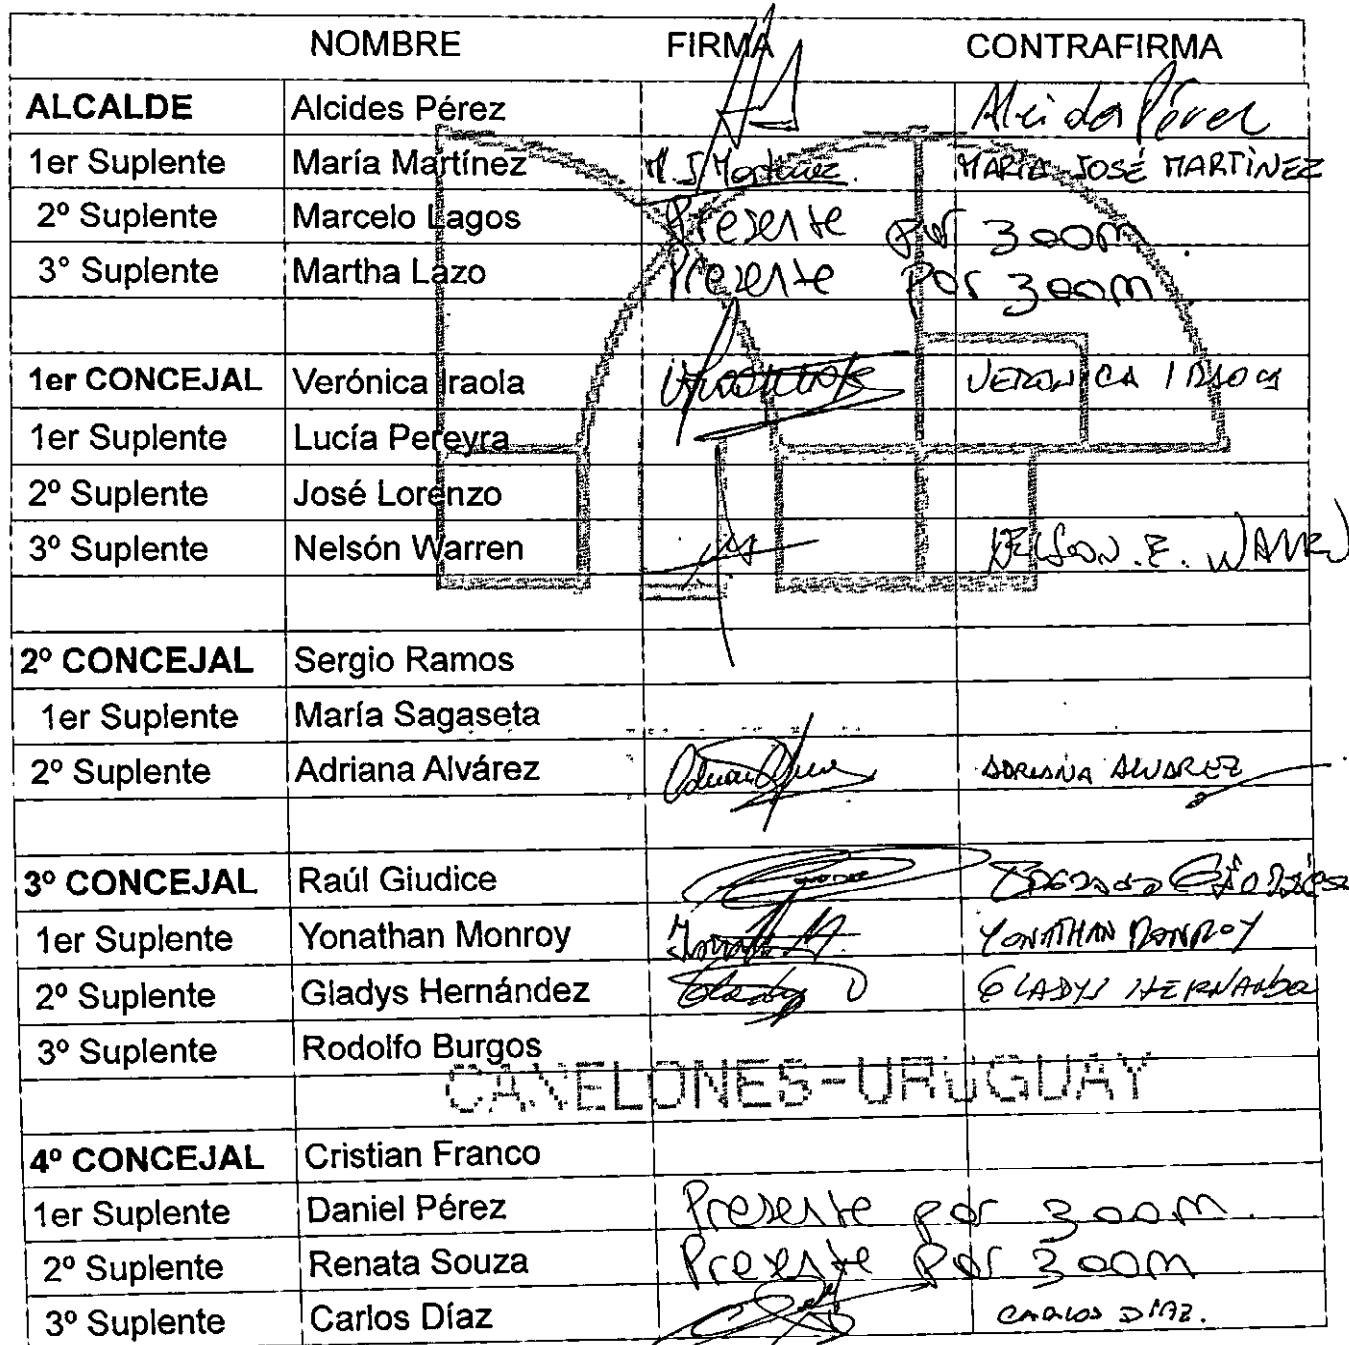 NOMBRE FIRMA CONTRAFIRMA
ALCALDE Alcides Pérez
1er Suplente María Martínez M J Martínez. MARIA JOSÉ MARTÍNEZ
2º Suplente Marcelo Lagos Presente por zoom.
3° Suplente Martha Lazo Presente por zoom
1er CONCEJAL Verónica Iraola VERONICA IRAOLA
1er Suplente Lucía Pereyra
2º Suplente José Lorenzo
3º Suplente Nelsón Warren NELSON.E. WARREN
2º CONCEJAL Sergio Ramos
1er Suplente María Sagaseta
2º Suplente Adriana Alvárez ADRIANA ALVAREZ
3º CONCEJAL Raúl Giudice
1er Suplente Yonathan Monroy YONATHAN MONROY
2º Suplente Gladys Hernández Gladys GLADYS HERNANDEZ
3º Suplente Rodolfo Burgos
CANELONES-URUGUAY
4º CONCEJAL Cristian Franco
1er Suplente Daniel Pérez Presente por zoom.
2º Suplente Renata Souza Presente por zoom
3º Suplente Carlos Díaz CARLOS DIAZ.